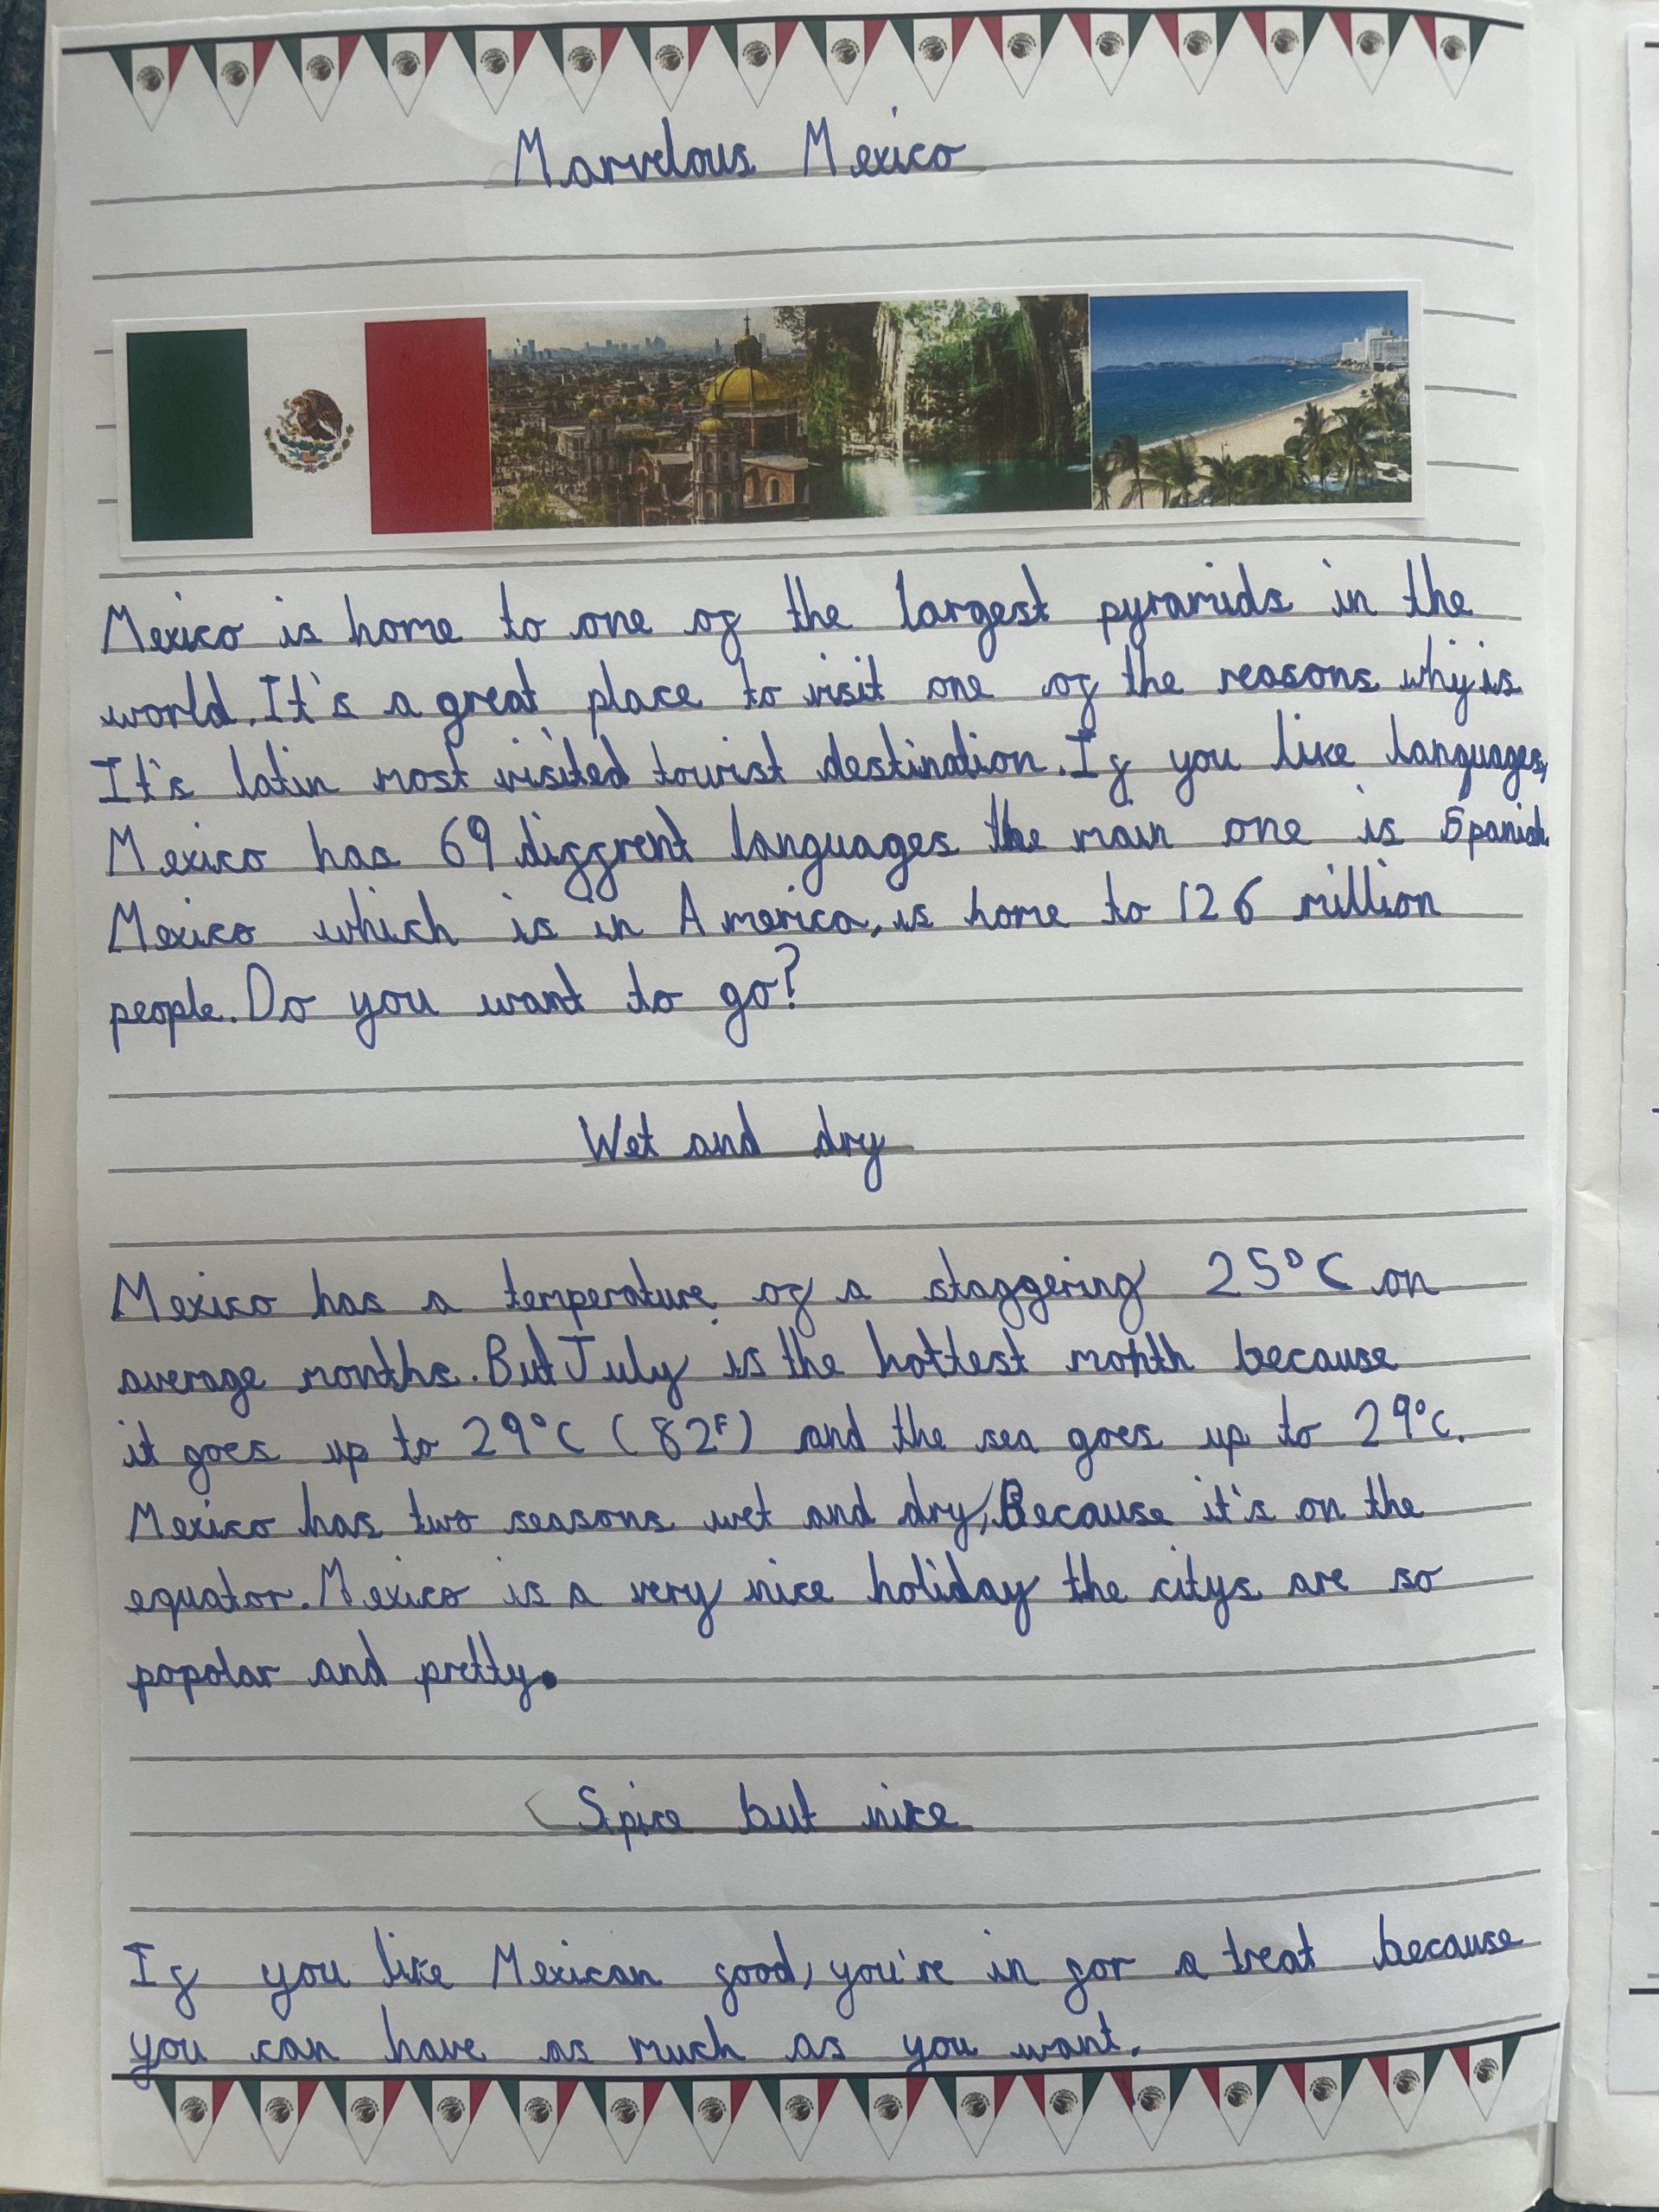 Marvelous Mexico
Mexico is home to one of the largest pyramids in the
world. It's a great place to visit one of the reasons why is
It's latin most visited tourist destination. If you like languages,
Mexico has 69 diffrent languages the main one is Spanish.
Mexico which is in America, is home to 126 million
people. Do you want to go?
Wet and dry
Mexico has a temperature of a staggering 25°C on
average months. But July is the hottest month because
it goes up to 29°C (82F) and the sea goes up to 29°C.
Mexico has two seasons wet and dry, Because it's on the
equator. Mexico is a very nice holiday the citys are so
popolar and pretty.
Spice but nice
If you like Mexican food, you're in for a treat because
you can have as much as you want.